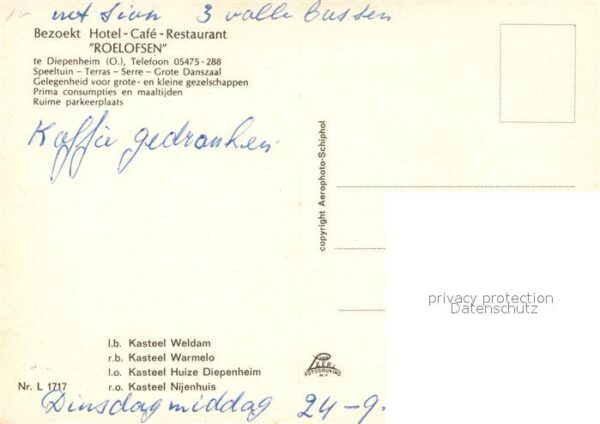 met Sion 3 volle bussen
Bezoekt Hotel - Café - Restaurant
"ROELOFSEN"
te Diepenheim (O.), Telefoon 05475 - 288
Speeltuin – Terras – Serre – Grote Danszaal
Gelegenheid voor grote- en kleine gezelschappen
Prima consumpties en maaltijden
Ruime parkeerplaats
Koffie gedronken
copyright Aerophoto-Schiphol
privacy protection
Datenschutz
l.b. Kasteel Weldam
r.b. Kasteel Warmelo
l.o. Kasteel Huize Diepenheim
r.o. Kasteel Nijenhuis
Nr. L 1717
FOTODRUKIND
N.V.
Dinsdagmiddag 24-9.